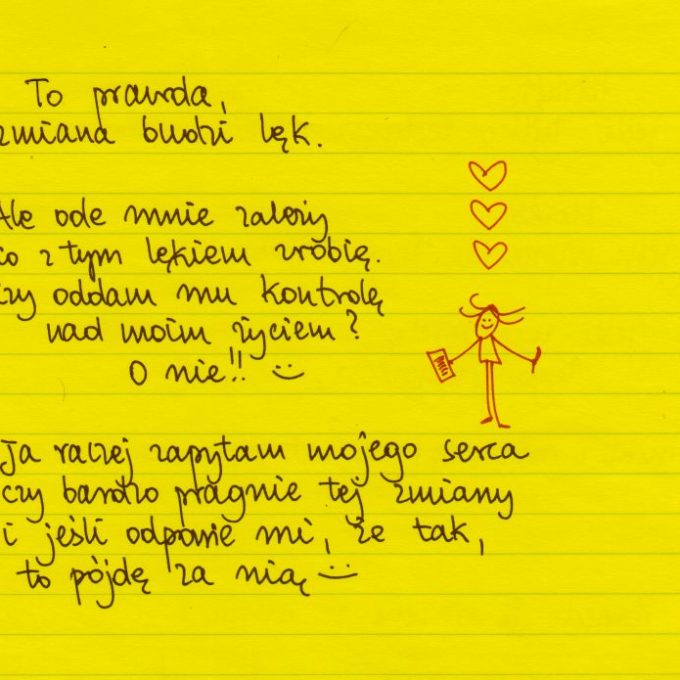 To prawda,
zmiana budzi lęk.
Ale ode mnie zależy
co z tym lękiem zrobię.
Czy oddam mu kontrolę
nad moim życiem?
O nie!! :)
Ja raczej zapytam mojego serca
czy bardzo pragnie tej zmiany
i jeśli odpowie mi, że tak,
to pójdę za nią :)